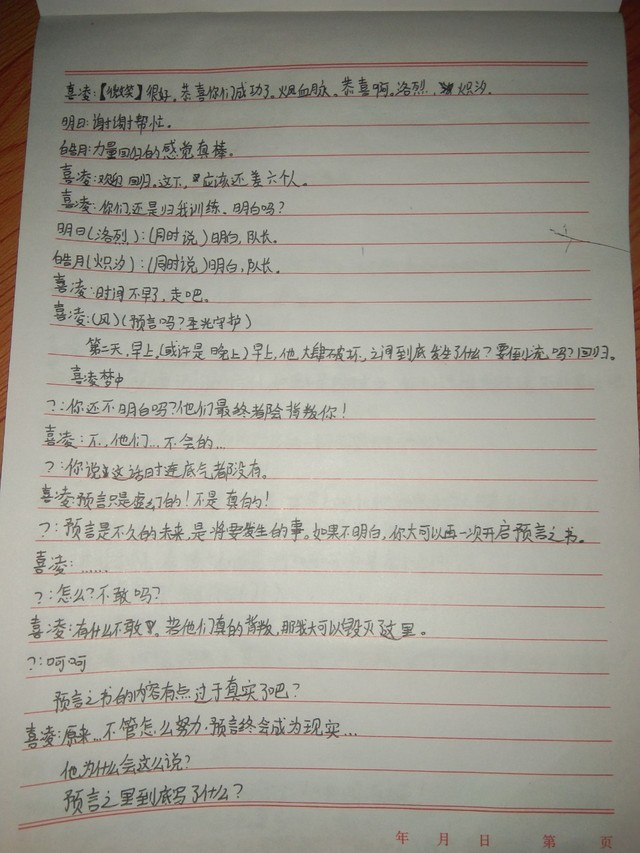 喜凌:【微笑】很好。恭喜你们成功了。焜血肤。恭喜啊。洛烈、炽汐.
明日:谢谢帮忙。
皓月:力量回归的感觉真棒。
喜凌:欢迎回归。这下,应该还差六个人。
喜凌:你们还是归我训练。明白吗?
明日(洛烈):(同时说)明白,队长。
皓月(炽汐):(同时说)明白,队长。
喜凌:时间不早了,走吧。
喜凌:(风)(预言吗?圣光守护)
第二天,早上,(或许是晚上)早上,他大肆破坏,之间到底发生了什么?要倒流吗?回归。
喜凌梦中
?:你还不明白吗?他们最终都会背叛你!
喜凌:不,他们...不会的...
?:你说这话时连底气都没有。
喜凌:预言只是虚幻的!不是真的!
?:预言是不久的未来,是将要发生的事。如果不明白,你大可以再一次开启预言之书。
喜凌:……
?:怎么?不敢吗?
喜凌:有什么不敢。若他们真的背叛,那我大可以毁灭了这里。
?:呵呵
预言之书的内容有点过于真实了吧?
喜凌:原来...不管怎么努力.预言终会成为现实...
他为什么会这么说?
预言之里到底写了什么?
年 月 日 第 页